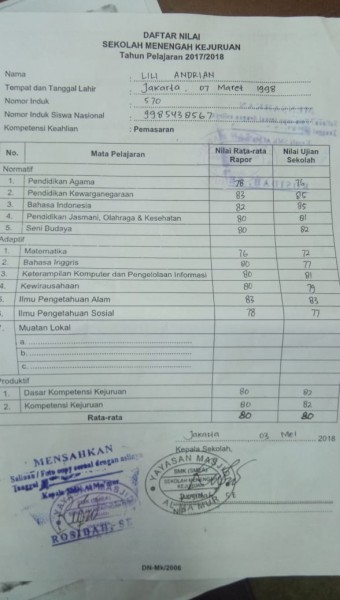 DAFTAR NILAI
SEKOLAH MENENGAH KEJURUAN
Tahun Pelajaran 2017/2018
Nama : LILI ANDRIAN
Tempat dan Tanggal Lahir : Jakarta, 07 Maret 1998
Nomor Induk : 570
Nomor Induk Siswa Nasional : 9985438567
Kompetensi Keahlian : Pemasaran
No. Mata Pelajaran Nilai Rata-rata Rapor Nilai Ujian Sekolah
Normatif
1. Pendidikan Agama 78
2. Pendidikan Kewarganegaraan 83 85
3. Bahasa Indonesia 82 85
4. Pendidikan Jasmani, Olahraga & Kesehatan 80 81
5. Seni Budaya 80 82
Adaptif
1. Matematika 76 77
2. Bahasa Inggris 80 77
3. Keterampilan Komputer dan Pengelolaan Informasi 80 81
4. Kewirausahaan 80 79
5. Ilmu Pengetahuan Alam 83 83
6. Ilmu Pengetahuan Sosial 78 77
7. Muatan Lokal
a.
b.
c.
Produktif
1. Dasar Kompetensi Kejuruan 80 82
2. Kompetensi Kejuruan 80 82
Rata-rata 80 80
Jakarta 03 Mei 2018
Kepala Sekolah,
MENSAHKAN
Salinan / Foto copy sesuai dengan aslinya
Tanggal
ROSIDAH, SE
YAYASAN MASJID
SEKOLAH MENENGAH KEJURUAN
DN-Mk/2006